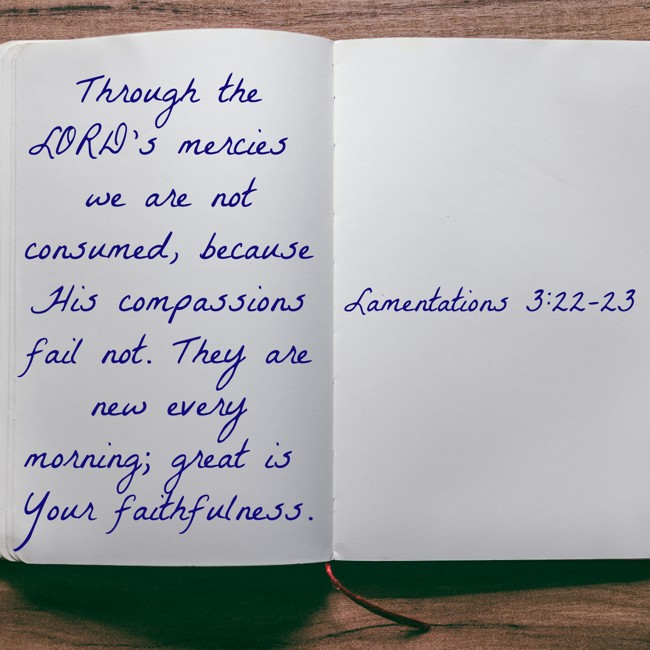 Through the
LORD's mercies
we are not
consumed, because
His compassions
fail not. They are
new every
morning; great is
Your faithfulness.
Lamentations 3:22-23